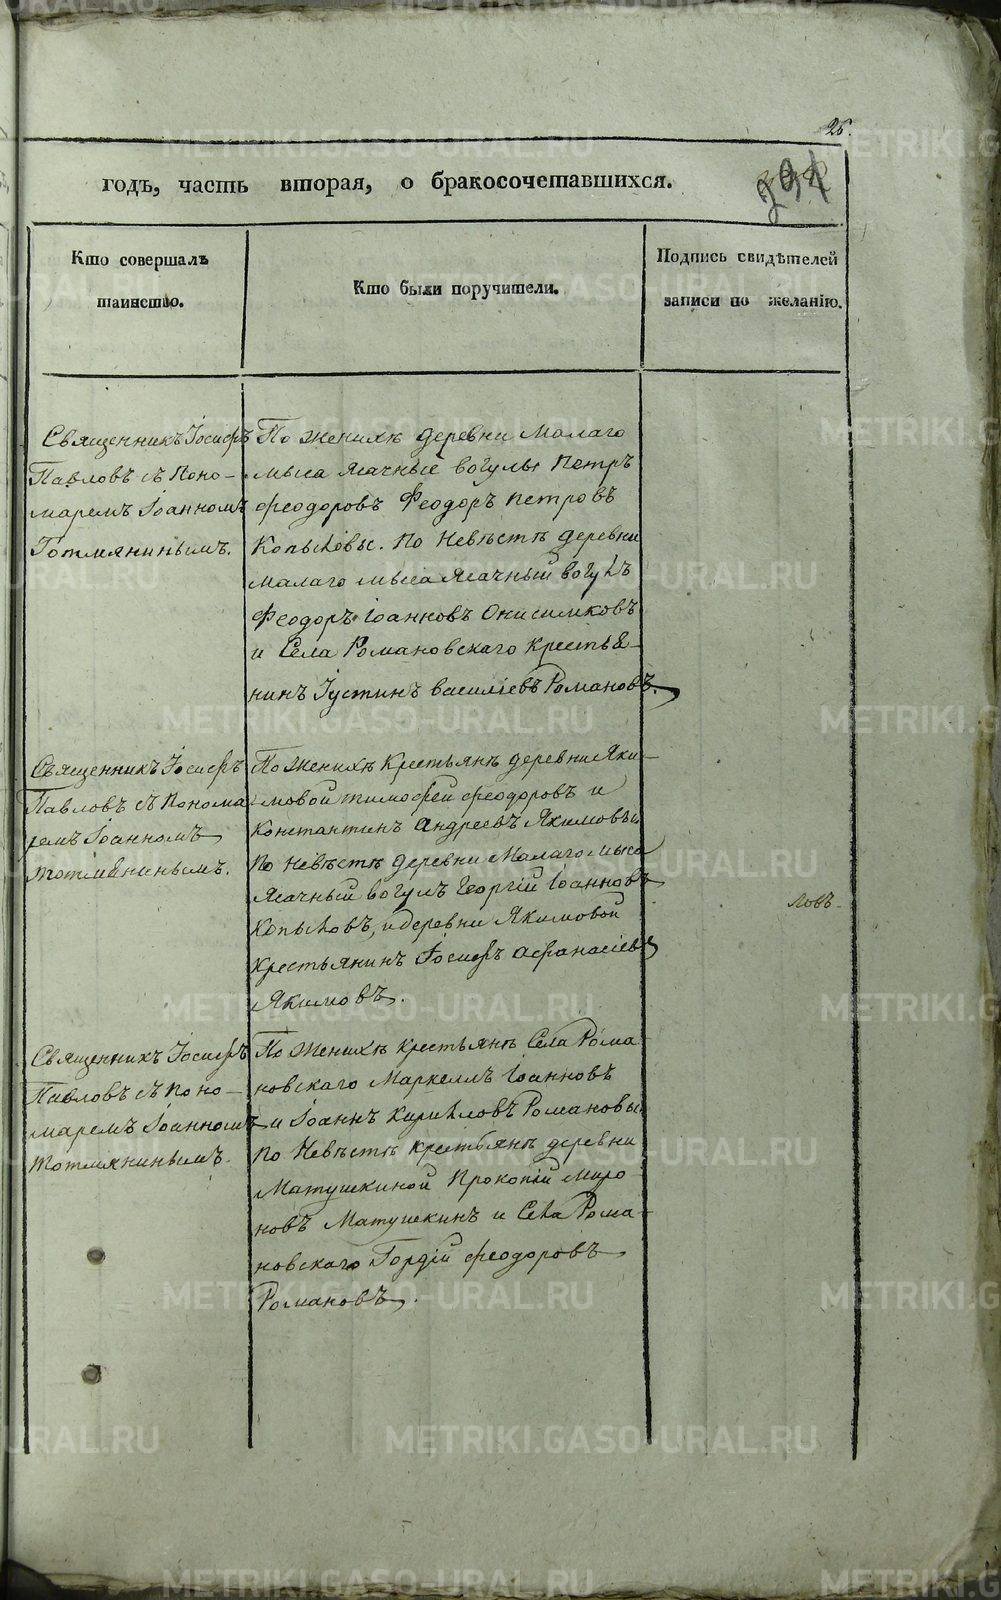 26.
годъ, часть вторая, о бракосочетавшихся.
291
Кто совершалъ
таинство.
Кто были поручители.
Подпись свидѣтелей
записи по желанію.
Священникъ Іосифъ
Павловъ съ Поно-
маремъ Іоанномъ
Тотмянинымъ.
По женихѣ деревни Малаго
мыса Ясачные вогулы Петръ
Феодоровъ Феодоръ Петровъ
Копыловы. По Невѣстѣ деревни
Малаго мыса Ясачный вогулъ
Феодоръ Іоанновъ Онисимковъ
и Села Романовскаго крестья-
нинъ Іустинъ Василіевъ Романовъ.
Священникъ Іосифъ
Павловъ съ Понома
ремъ Іоанномъ
Тотмянинымъ.
По Женихѣ Крестьянѣ деревни Яки-
мовой Тимофей Феодоровъ и
Константинъ Андреевъ Якимовы
По Невѣстѣ деревни Малаго мыса
Ясачный вогулъ Георгій Іоанновъ
Копыловъ, и деревни Якимовой
Крестьянинъ Іосифъ Афанасіевъ
Якимовъ.
ловъ
Священникъ Іосифъ
Павловъ съ Поно-
маремъ Іоанномъ
Тотмянинымъ.
По Женихѣ крестьянѣ Села Рома-
новскаго Маркеллъ Іоанновъ
и Іоаннъ Кириловъ Романовы
По Невѣстѣ крестьянѣ деревни
Матушкиной Прокопій Миро
новъ Матушкинъ и Села Рома-
новскаго Гордій Феодоровъ
Романовъ.
METRIKI.GASO-URAL.RU